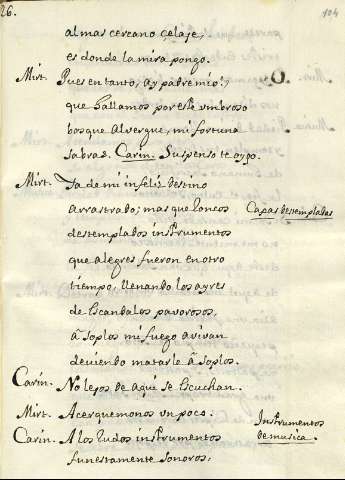 26.
104
al mas cercano çelaje,
es donde la mira pongo.
Mirt. Pues en tanto, ay padre mio!,
que hallamos por este vmbroso
bosque Alvergue, mi fortuna
sabras. Carin. Suspenso te oygo.
Mirt. Ya de mi infeliz destino
arrastrado; mas que roncos
Cajas destempladas
destemplados instrumentos
que alegres fueron en otro
tiempo, llenando los ayres
de Escandalos pavorosos,
â soplos mi fuego avivan
deviendo matarle â soplos.
Carin. No lejos de Aqui se Escuchan.
Mirt. Acerquemonos vn poco.
Instrumentos
de musica.
Carin. A los rudos instrumentos
funestamente sonoros;